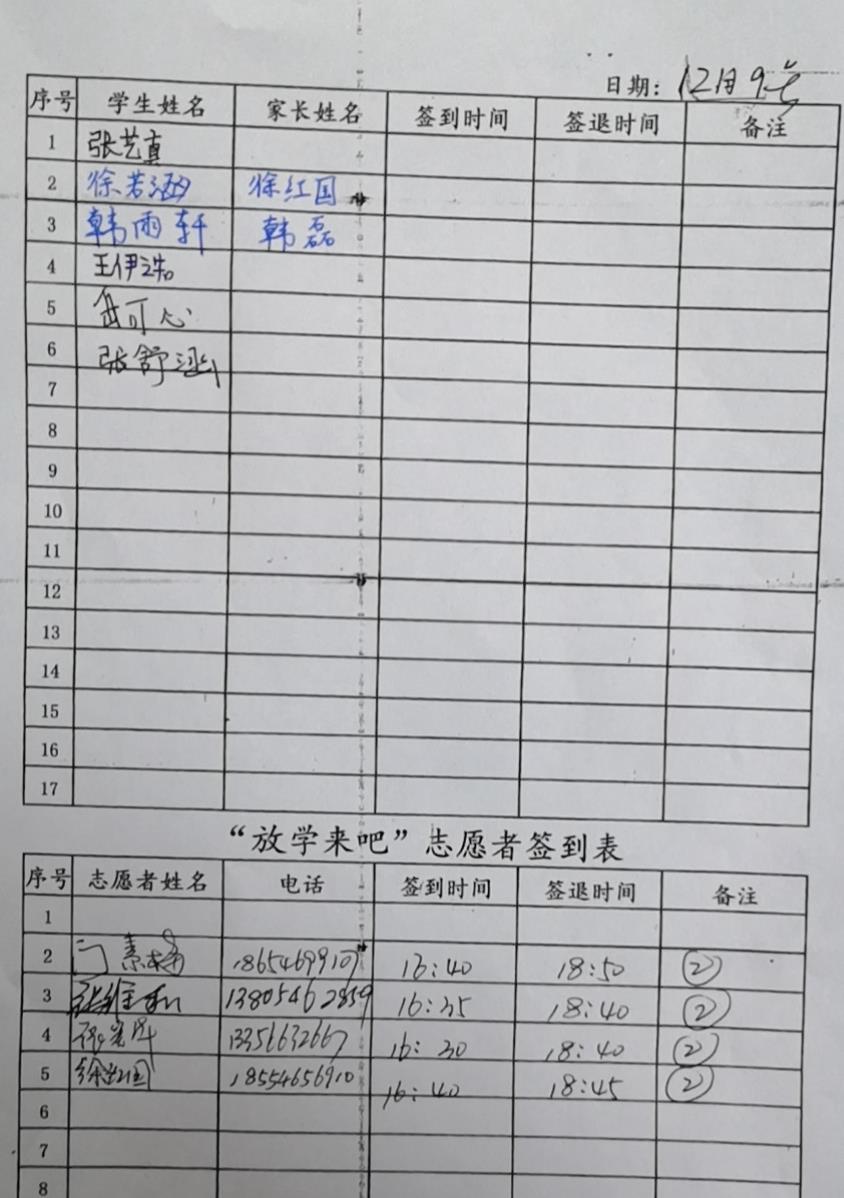 日期：12月9号
序号 学生姓名 家长姓名 签到时间 签退时间 备注
1 张艺真
2 徐若汐 徐红国
3 韩雨轩 韩磊
4 王伊
5 可心
6 张舒涵
7
8
9
10
11
12
13
14
15
16
17
“放学来吧”志愿者签到表
序号 志愿者姓名 电话 签到时间 签退时间 备注
1
2 素 18654699107 16:40 18:50 ②
3 13805462859 16:35 18:40 ②
4 13356632667 16:30 18:40 ②
5 徐红国 18554656910 16:40 18:45 ②
6
7
8